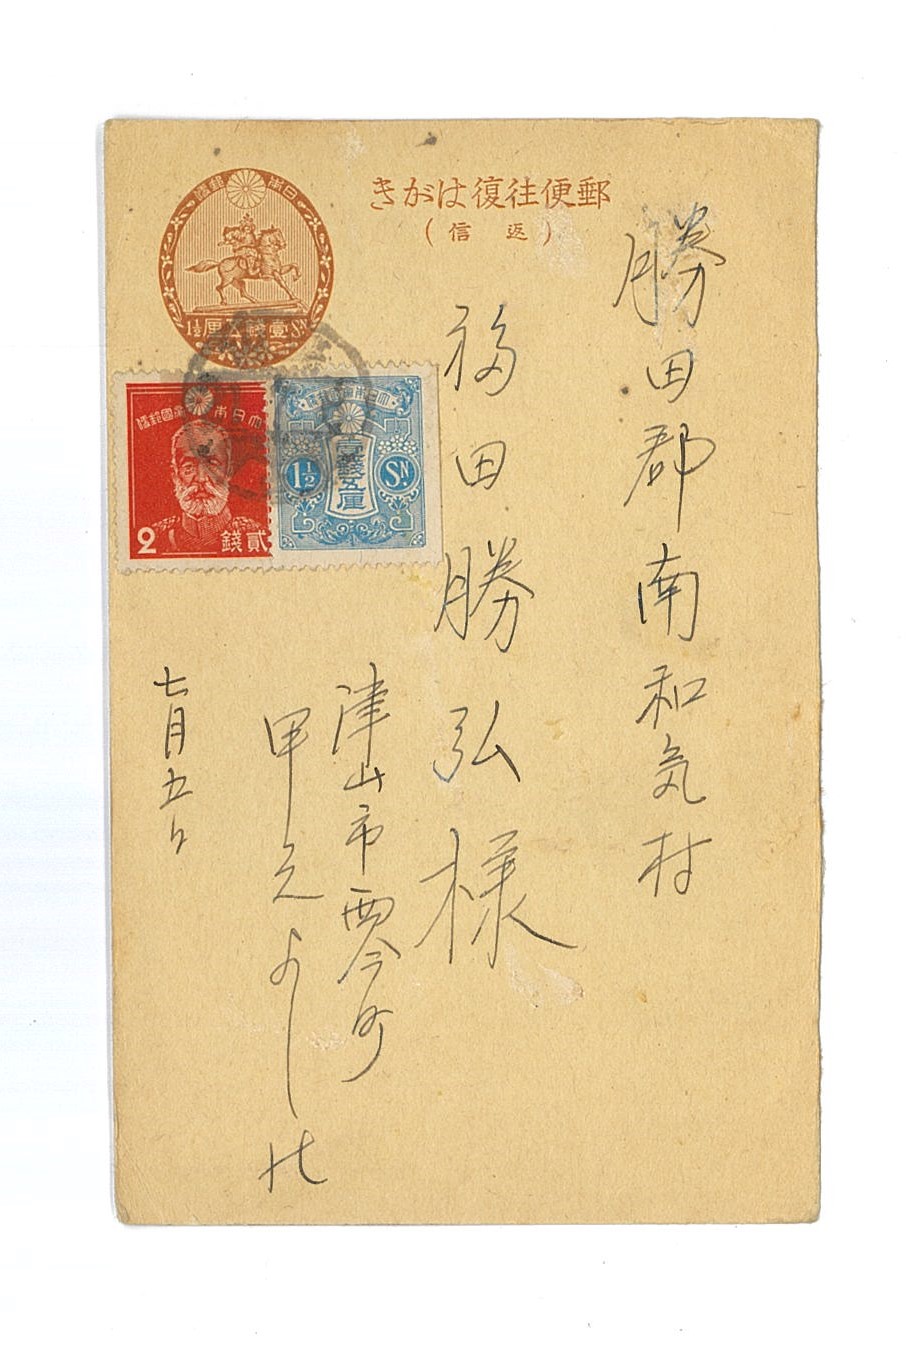 郵便往復はがき
(返信)
日本郵便
壹錢五厘
1½ Sn
大日本帝國郵便
2 貳錢
大日本帝國郵便
壹錢五厘
1½ Sn
勝田郡南和気村
福田勝弘様
津山市西今町
甲元よし
七月五日